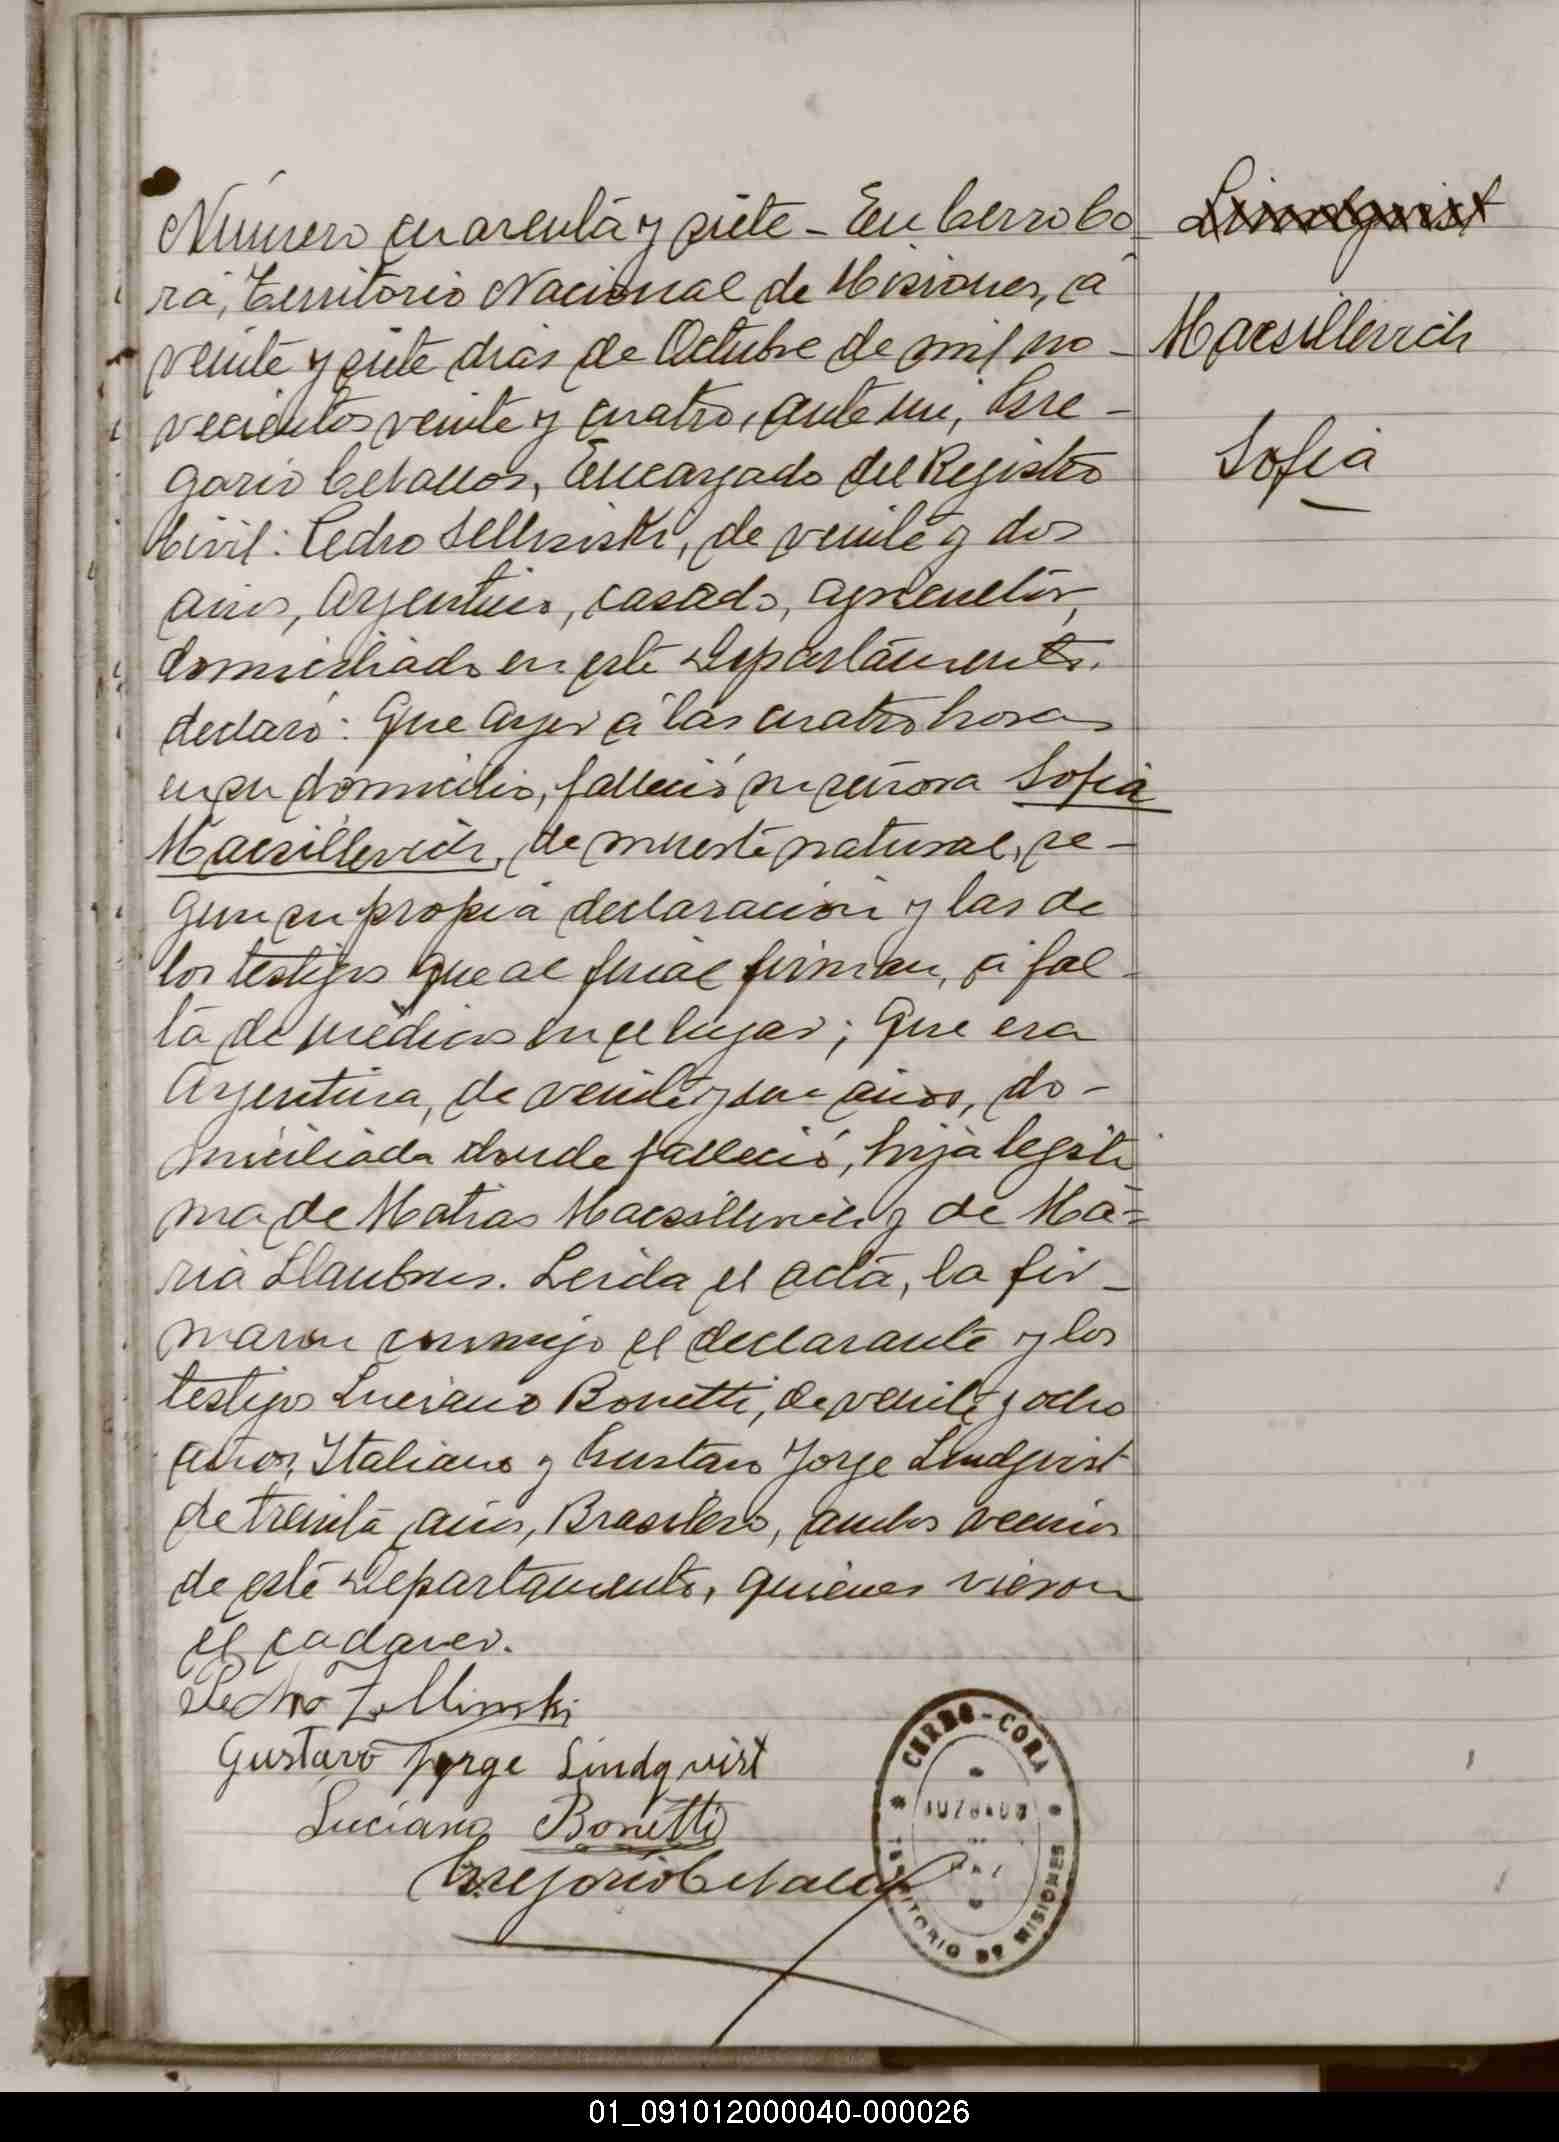 Número cuarenta y siete - En Cerro Co-
rá, Territorio Nacional de Misiones, á
veinte y siete dias de Octubre de mil no-
vecientos veinte y cuatro, ante mi, Gre-
gorio Ceballos, Encargado del Registro
Civil: Pedro Sellinski, de veinte y dos
años, Argentino, casado, agricultor,
domiciliado en este Departamento,
declaró: Que ayer á las cuatro horas
en su domicilio, falleció su señora Sofia
Macsillevich, de muerte natural, se-
gun su propia declaración y las de
los testigos que al final firman, á fal-
ta de médicos en el lugar; Que era
Argentina, de veinte y un años, do-
miciliada donde falleció, hija legíti
ma de Matias Macsillevich y de Ma=
ria. Leida el acta, la fir-
maron conmigo el declarante y los
testigos Luciano Bonetti, de veinte y ocho
años, Italiano y Gustavo Jorge Lindqvist
de treinta años, Brasilero, ambos vecinos
de este Departamento, quienes vieron
el cadaver.
Pedro Zellinski
Gustavo Jorge Lindqvist
Luciano Bonetti
Gregorio Ceballos
CERRO-CORA
JUZGADO
PAZ
TERRITORIO DE MISIONES
Lindqvist
Macsillevich
Sofia
01_091012000040-000026